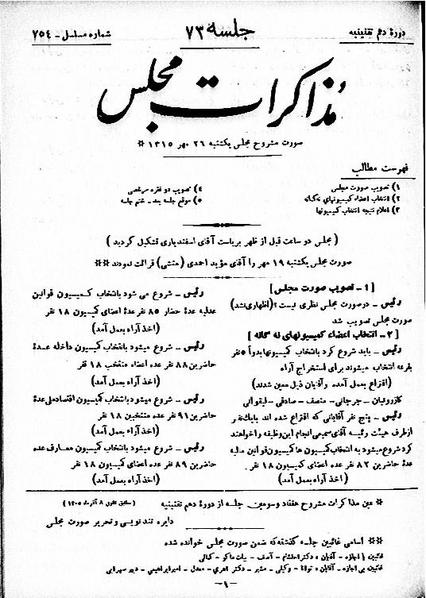 دورهٔ دهم تقنینیه
جلسه ۷۳
شماره مسلسل - ۷۵٤
مذاکرات مجلس
صورت مشروح مجلس یکشنبه ۲٦ مهر ۱۳۱٥
فهرست مطالب
۱) تصویب صورت مجلس
۲) انتخاب اعضاء کمیسیونهای نه گانه
۳) اعلام نتیجه انتخاب کمیسیونها
٤) تصویب دو فقره مرخصی
٥) موقع جلسه بعد - ختم جلسه
( مجلس دو ساعت قبل از ظهر بریاست آقای اسفندیاری تشکیل گردید )
صورت مجلس یکشنبه ۱۹ مهر را آقای مؤید احمدی (منشی) قرائت نمودند
[ ۱ - تصویب صورت مجلس ]
رئیس - در صورت مجلس نظری نیست ؟ (اظهاری نشد)
صورت مجلس تصویب شد
[ ۲ - انتخاب اعضاء کمیسیونهای نه گانه ]
رئیس - باید شروع کرد بانتخاب کمیسیونها بدواً ٥ نفر
بقرعه انتخاب میشوند برای استخراج آراء
(اقتراع بعمل آمده و آقایان ذیل معین شدند)
کازرونیان - جرجانی - منصف - صادقی - لیقوانی
رئیس - پنج نفر آقایانی که اقتراع شده اند بایک نفر
از طرف هیئت رئیسه آقای سمیعی انجام این وظیفه را خواهند
کرد شروع میشود به انتخاب کمیسیون ها کمیسیون قوانین مالیه
عدهٔ حاضرین ۸۲ نفر عده اعضای کمیسیون ۱۸ نفر
(اخذ آراء بعمل آمد)
رئیس - شروع می شود بانتخاب کمیسیون قوانین
عدلیه عدهٔ حضار ۸٥ نفر عدهٔ اعضای کمیسیون ۱۸ نفر
(اخذ آراء بعمل آمد)
رئیس - شروع میشود بانتخاب کمیسیون داخله عدهٔ
حاضرین ۸۸ نفر عده اعضاء منتخب ۱۸ نفر
(اخذ آراء بعمل آمد)
رئیس - شروع میشود بانتخاب کمیسیون اقتصاد ملی عدهٔ
حاضرین ۹۱ نفر عده منتخبین ۱۸ نفر
(اخذ آراء بعمل آمد)
رئیس - شروع میشود بانتخاب کمیسیون معارف عده
حاضرین ۸۹ نفر عده اعضای کمیسیون ۱۸ نفر
(اخذ آراء بعمل آمد)
عین مذاکرات مشروح هفتاد و سومین جلسه از دورهٔ دهم تقنینیه
دایره تند نویسی و تحریر صورت مجلس
اسامی غائبین جلسه گذشته که ضمن صورت مجلس خوانده شده